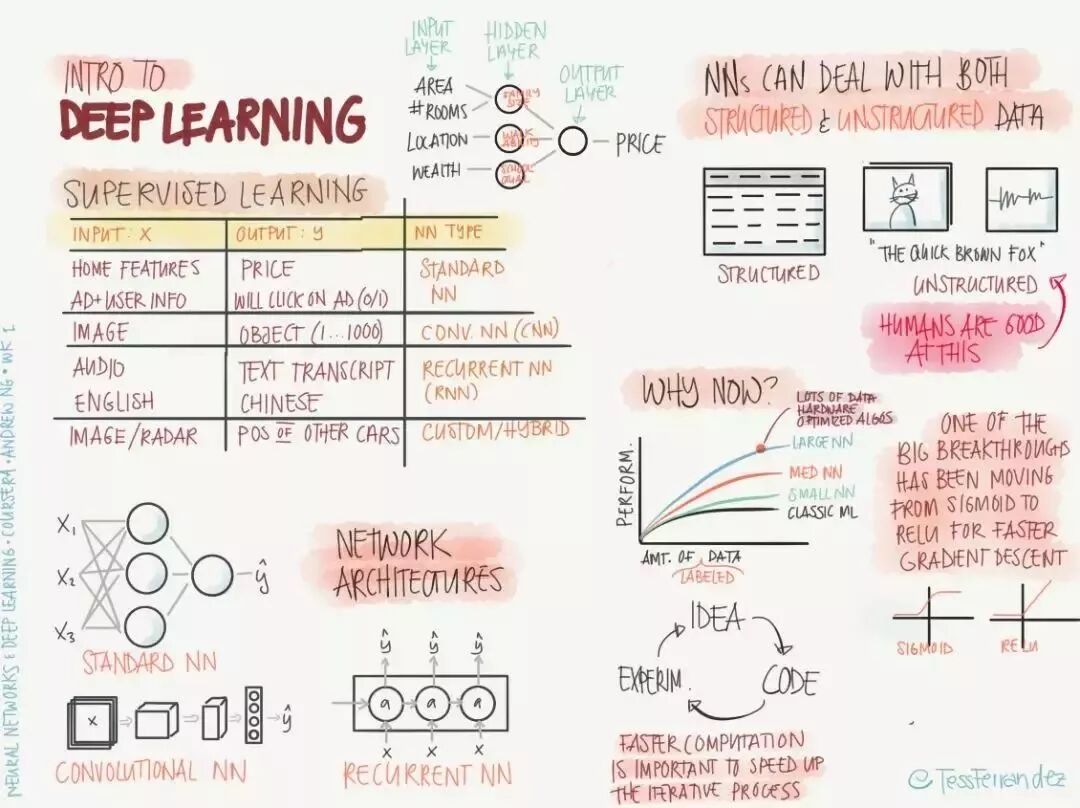 INTRO TO
DEEP LEARNING
INPUT LAYER
HIDDEN LAYER
OUTPUT LAYER
AREA
#ROOMS
LOCATION
WEALTH
FAMILY SIZE
WALK ABILITY
SCHOOL QUAL
PRICE
SUPERVISED LEARNING
INPUT: X OUTPUT: y NN TYPE
HOME FEATURES PRICE STANDARD
AD+USER INFO WILL CLICK ON AD (0/1) NN
IMAGE OBJECT (1...1000) CONV. NN (CNN)
AUDIO TEXT TRANSCRIPT RECURRENT NN
ENGLISH CHINESE (RNN)
IMAGE/RADAR POS OF OTHER CARS CUSTOM/HYBRID
NNs CAN DEAL WITH BOTH
STRUCTURED & UNSTRUCTURED DATA
STRUCTURED
"THE QUICK BROWN FOX"
UNSTRUCTURED
HUMANS ARE GOOD
AT THIS
WHY NOW?
LOTS OF DATA
HARDWARE
OPTIMIZED ALGOS
LARGE NN
MED NN
SMALL NN
CLASSIC ML
PERFORM.
AMT. OF DATA
LABELED
ONE OF THE
BIG BREAKTHROUGHS
HAS BEEN MOVING
FROM SIGMOID TO
RELU FOR FASTER
GRADIENT DESCENT
SIGMOID
RELU
NETWORK
ARCHITECTURES
X1
X2
X3
ŷ
STANDARD NN
X
ŷ
CONVOLUTIONAL NN
ŷ ŷ ŷ
a a a
X X X
RECURRENT NN
IDEA
CODE
EXPERIM.
FASTER COMPUTATION
IS IMPORTANT TO SPEED UP
THE ITERATIVE PROCESS
NEURAL NETWORKS & DEEP LEARNING • COURSERA • ANDREW NG • WK 1
@TessFerrandez